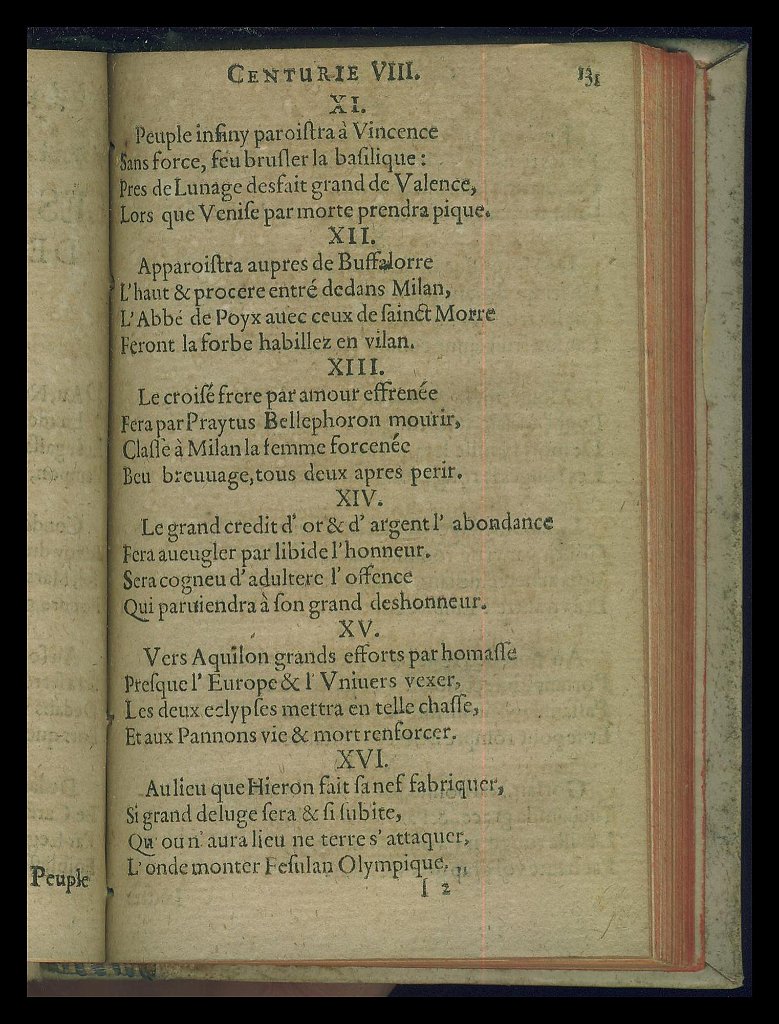 CENTURIE VIII. 131
XI.
Peuple infiny paroiſtra à Vincence
Sans force, feu bruſler la baſilique :
Pres de Lunage desfait grand de Valence,
Lors que Veniſe par morte prendra pique.
XII.
Apparoiſtra aupres de Buffalorre
L'haut & procere entré dedans Milan,
L'Abbé de Poyx auec ceux de ſainct Morre
Feront la forbe habillez en vilan.
XIII.
Le croiſé frere par amour effrenée
Fera par Praytus Bellephoron mourir,
Claſſe à Milan la femme forcenée
Beu breuuage, tous deux apres perir.
XIV.
Le grand credit d' or & d' argent l' abondance
Fera aueugler par libide l'honneur.
Sera cogneu d'adultere l' offence
Qui paruiendra à ſon grand deshonneur.
XV.
Vers Aquilon grands efforts par homaſſe
Preſque l' Europe & l' Vniuers vexer,
Les deux eclypſes mettra en telle chaſſe,
Et aux Pannons vie & mort renforcer.
XVI.
Au lieu que Hieron fait ſa nef fabriquer,
Si grand deluge ſera & ſi ſubite,
Qu' on n' aura lieu ne terre s' attaquer,
L'onde monter Feſulan Olympique.
I 2
Peuple